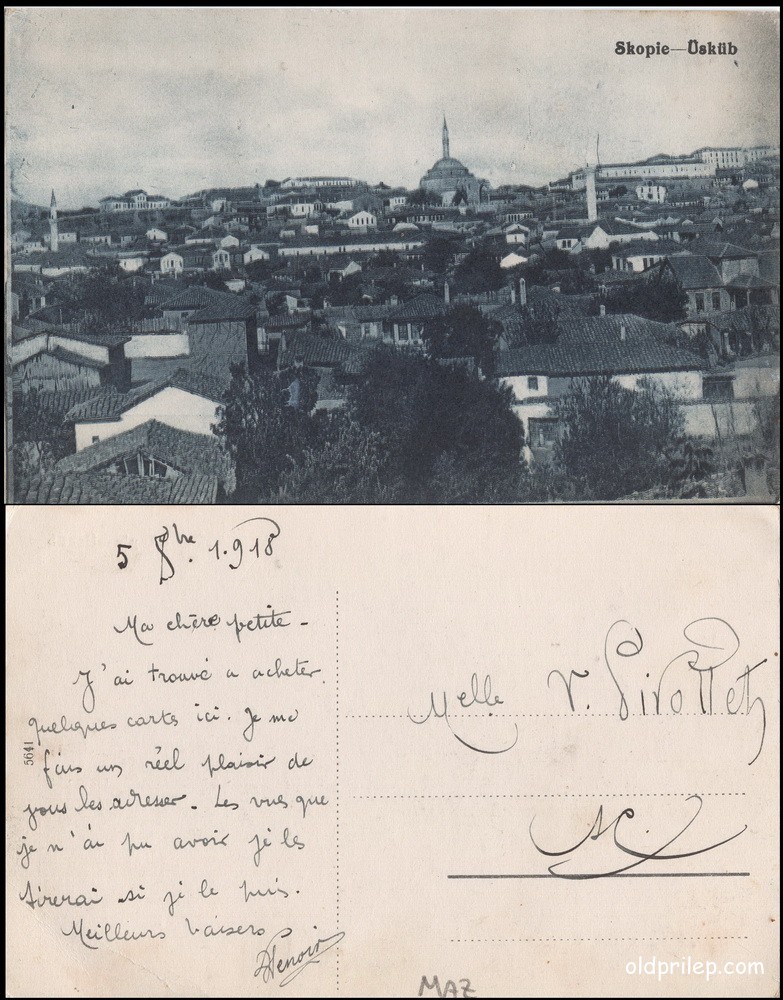 Skopie—Üsküb
5 8bre. 1.918
Ma chère petite -
J'ai trouvé a acheter
quelques cartes ici. Je me
fais un réel plaisir de
vous les adresser. Les vues que
je n'ai pu avoir je les
tirerai si je le puis.
Meilleurs baisers
5641
Melle V.
MAZ
oldprilep.com